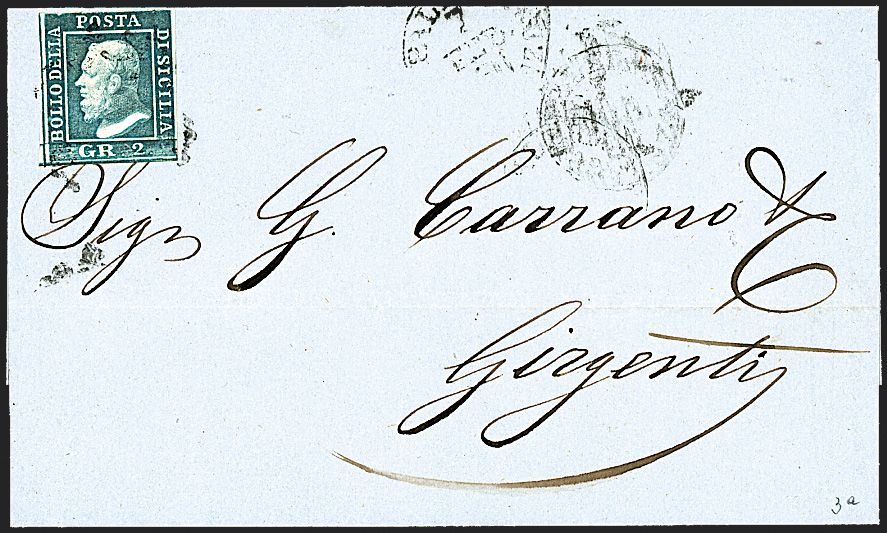 POSTA
BOLLO DELLA
DI SICILIA
GR 2
Sigr G. Carrano & C
Girgenti
3a